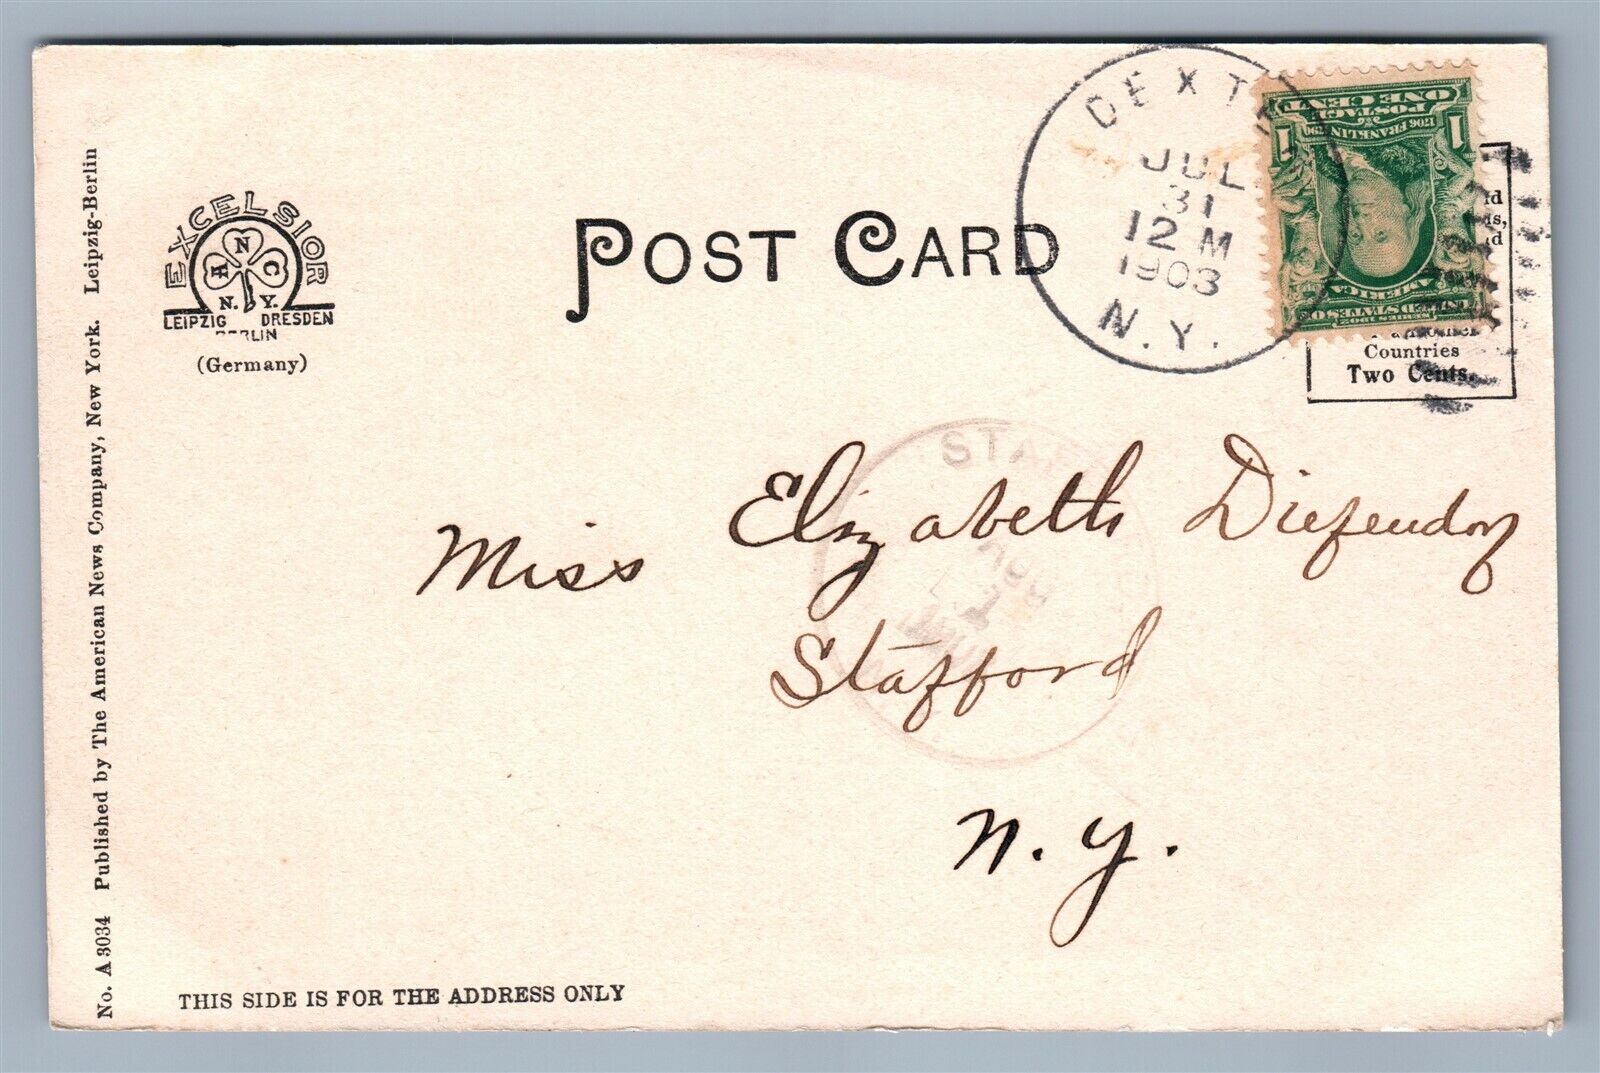 No. A 3034 Published by The American News Company, New York. Leipzig-Berlin
EXCELSIOR
A N C
N. Y.
LEIPZIG DRESDEN
BERLIN
(Germany)
POST CARD
DEXTE
JUL
31
12 M
1903
N.Y.
1 POSTAGE 1
ONE CENT
1706 FRANKLIN 1790
AMERICA
Countries
Two Cents.
STAFF
Miss Elizabeth Diefendorf
Stafford
N. Y.
THIS SIDE IS FOR THE ADDRESS ONLY